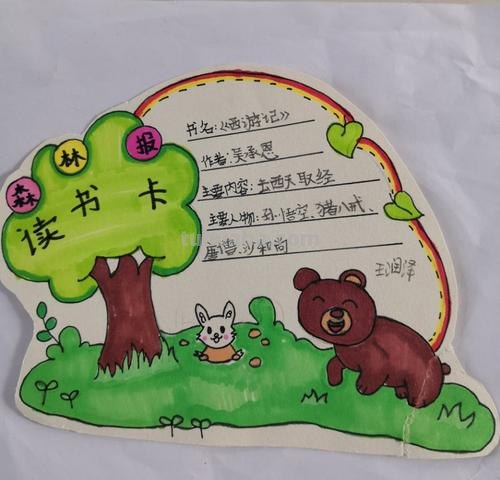 森林报
读书卡
书名:《西游记》
作者:吴承恩
主要内容:去西天取经
主要人物:孙悟空、猪八戒、
唐僧、沙和尚
王润泽